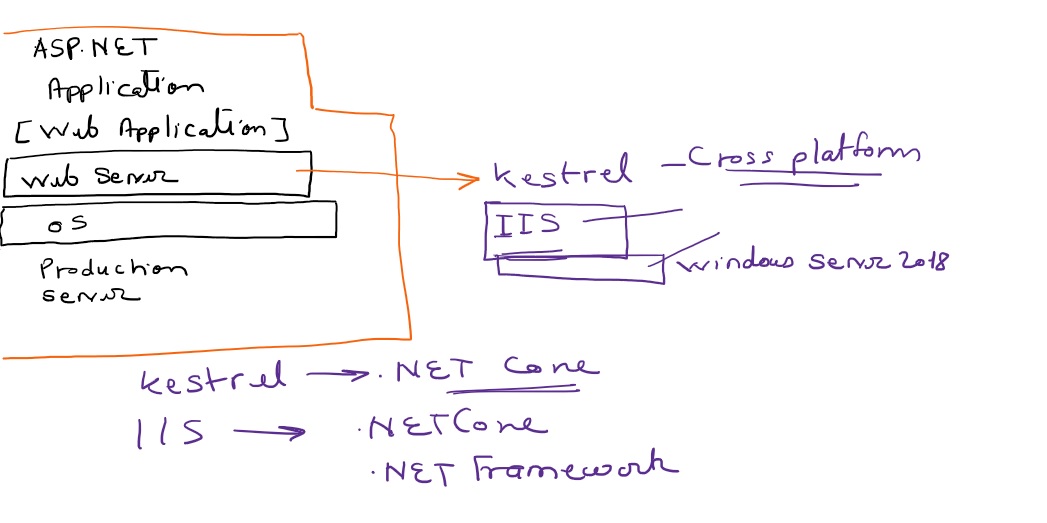 ASP.NET
Application
[Web Application]
Web Server
OS
Production
Server
kestrel - Cross platform
IIS
Windows Server 2018
kestrel → .NET Core
IIS → .NET Core
.NET Framework